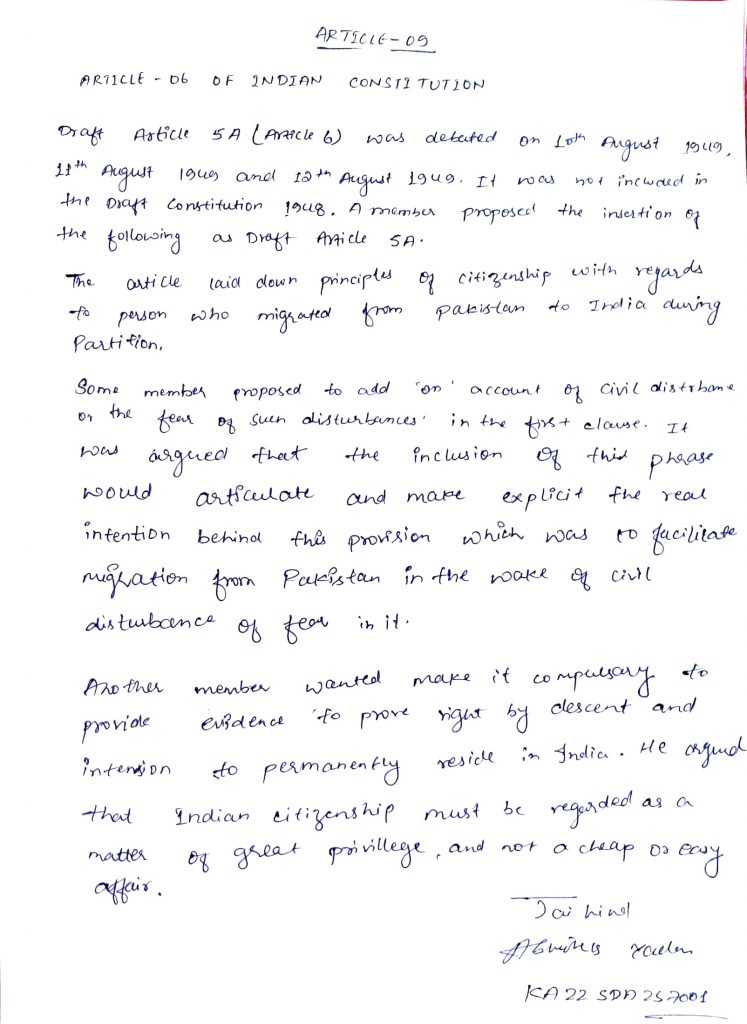 ARTICLE - 09
ARTICLE - 06 OF INDIAN CONSTITUTION
Draft Article 5A (Article 6) was debated on 10th August 1949,
11th August 1949 and 12th August 1949. It was not included in
the Draft Constitution 1948. A member proposed the insertion of
the following as Draft Article 5A.
The article laid down principles of citizenship with regards
to person who migrated from Pakistan to India during
Partition.
Some member proposed to add 'on' account of civil distrbance
or the fear of such disturbances' in the first clause. It
was argued that the inclusion of this phrase
would articulate and make explicit the real
intention behind this provision which was to facilitate
migration from Pakistan in the wake of civil
disturbance of fear in it.
Another member wanted make it compulsary to
provide evidence to prove right by descent and
intension to permanently reside in India. He argued
that Indian citizenship must be regarded as a
matter of great privillege, and not a cheap or easy
affair.
Jai hind
KA22 SDA 257001